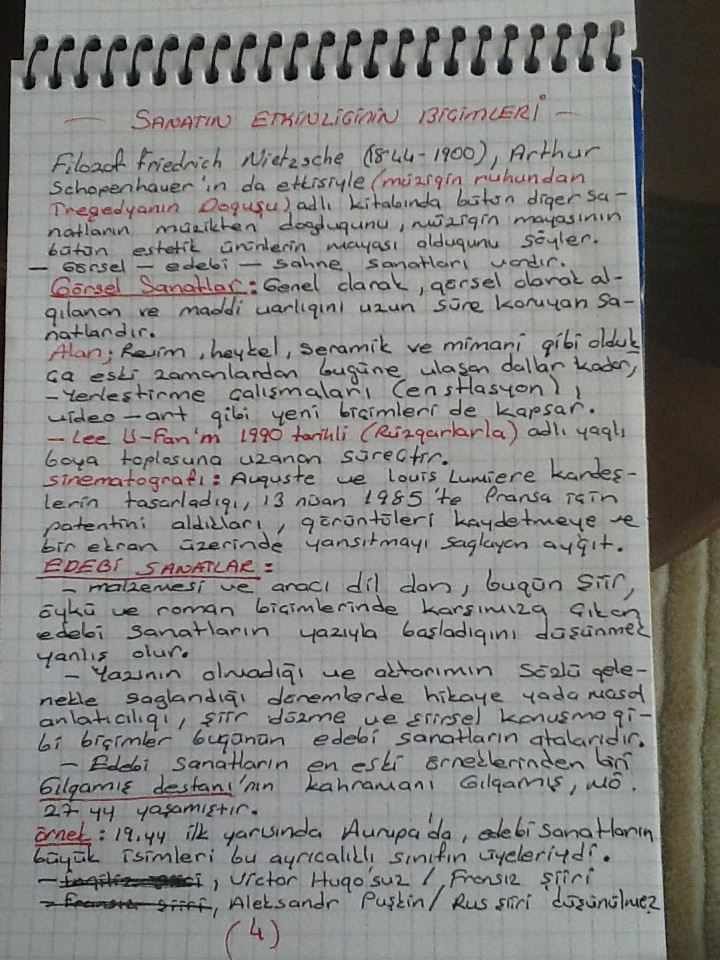 — SANATIN ETKİNLİĞİNİN BİÇİMLERİ —
Filozof Friedrich Nietzsche (1844-1900), Arthur
Schopenhauer'in da etkisiyle (müziğin ruhundan
Tregedyanın Doğuşu) adlı kitabında bütün diğer sa-
natların müzikten doğduğunu, müziğin mayasının
bütün estetik ürünlerin mayası olduğunu söyler.
— Görsel — edebi — sahne sanatları vardır.
Görsel Sanatlar: Genel olarak, görsel olarak al-
gılanan ve maddi varlığını uzun süre koruyan sa-
natlardır.
Alan; Resim, heykel, seramik ve mimari gibi olduk
ça eski zamanlardan bugüne ulaşan dallar kadar,
-Yerleştirme çalışmaları (enstlasyon),
video-art gibi yeni biçimleri de kapsar.
- Lee U-Fan'ın 1990 tarihli (Rüzgarlarla) adlı yağlı
boya toplosuna uzanan süreçtir.
Sinematografi: Auguste ve Louis Lumiere kardeş-
lerin tasarladığı, 13 nisan 1985'te Fransa için
patentini aldıkları, görüntüleri kaydetmeye ve
bir ekran üzerinde yansıtmayı sağlayan aygıt.
EDEBİ SANATLAR:
- malzemesi ve aracı dil dan, bugün şiir,
öykü ve roman biçimlerinde karşımıza çıkan
edebi sanatların yazıyla başladığını düşünmek
yanlış olur.
- Yazının olmadığı ve aktarımın sözlü gele-
nekle sağlandığı dönemlerde hikaye yada masal
anlatıcılığı, şiir düzme ve şiirsel konuşma gi-
bi biçimler bugünün edebi sanatların atalarıdır.
- Edebi sanatların en eski örneklerinden biri
Gılgamış destanı'nın kahramanı Gılgamış, MÖ.
27 yy yaşamıştır.
örnek: 19.yy ilk yarısında Avrupa'da, edebi sanatların
büyük isimleri bu ayrıcalıklı sınıfın üyeleriydi.
, Victor Hugo'suz / Fransız şiiri
, Aleksandr Puşkin / Rus şiiri düşünülmez
(4)